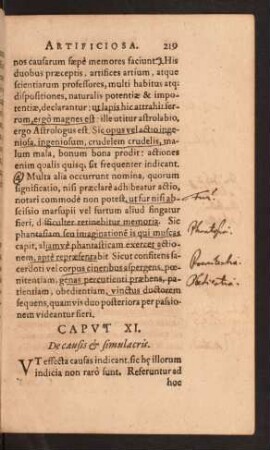 ARTIFICIOSA. 219
nos causarum sæpè memores faciunt). His
duobus præceptis, artifices artium, atque
scientiarum professores, multi habitus atq;
dispositiones, naturalis potentiæ & impo-
tentiæ, declarantur: ut lapis hic attrahit fer-
rum, ergò magnes est: ille utitur astrolabio,
ergo Astrologus est. Sic opus vel actio inge-
niosa, ingeniosum, crudelem crudelis, ma-
lum mala, bonum bona prodit: actiones
enim qualis quisq; sit frequenter indicant.
Multa alia occurrunt nomina, quorum
significatio, nisi præclarè adhibeatur actio,
notari commodè non potest, ut fur nisi ab-
scissio marsupii vel furtum aliud singatur
fieri, difficulter retinebitur memoria. Sic
phantasiam, seu imaginationẽ is qui muscas
capit, aliamvè phantasticam exercet actio-
nem, aptè repræsentabit. Sicut confitens sa-
cerdoti vel corpus cinenbus aspergens, pœ-
nitentiam, genas percutienti præbens, pa-
tientiam, obedientiam, vinctus ductorem
sequens, quamvis duo posteriora per passio-
nem videantur fieri.
Fur.
Phantasia
Poenitentia
Obedientia
CAPUT XI.
De causis & simulacris.
UT effecta causas indicant, sic hę illorum
indicia non rarò sunt. Referuntur ad
hoc